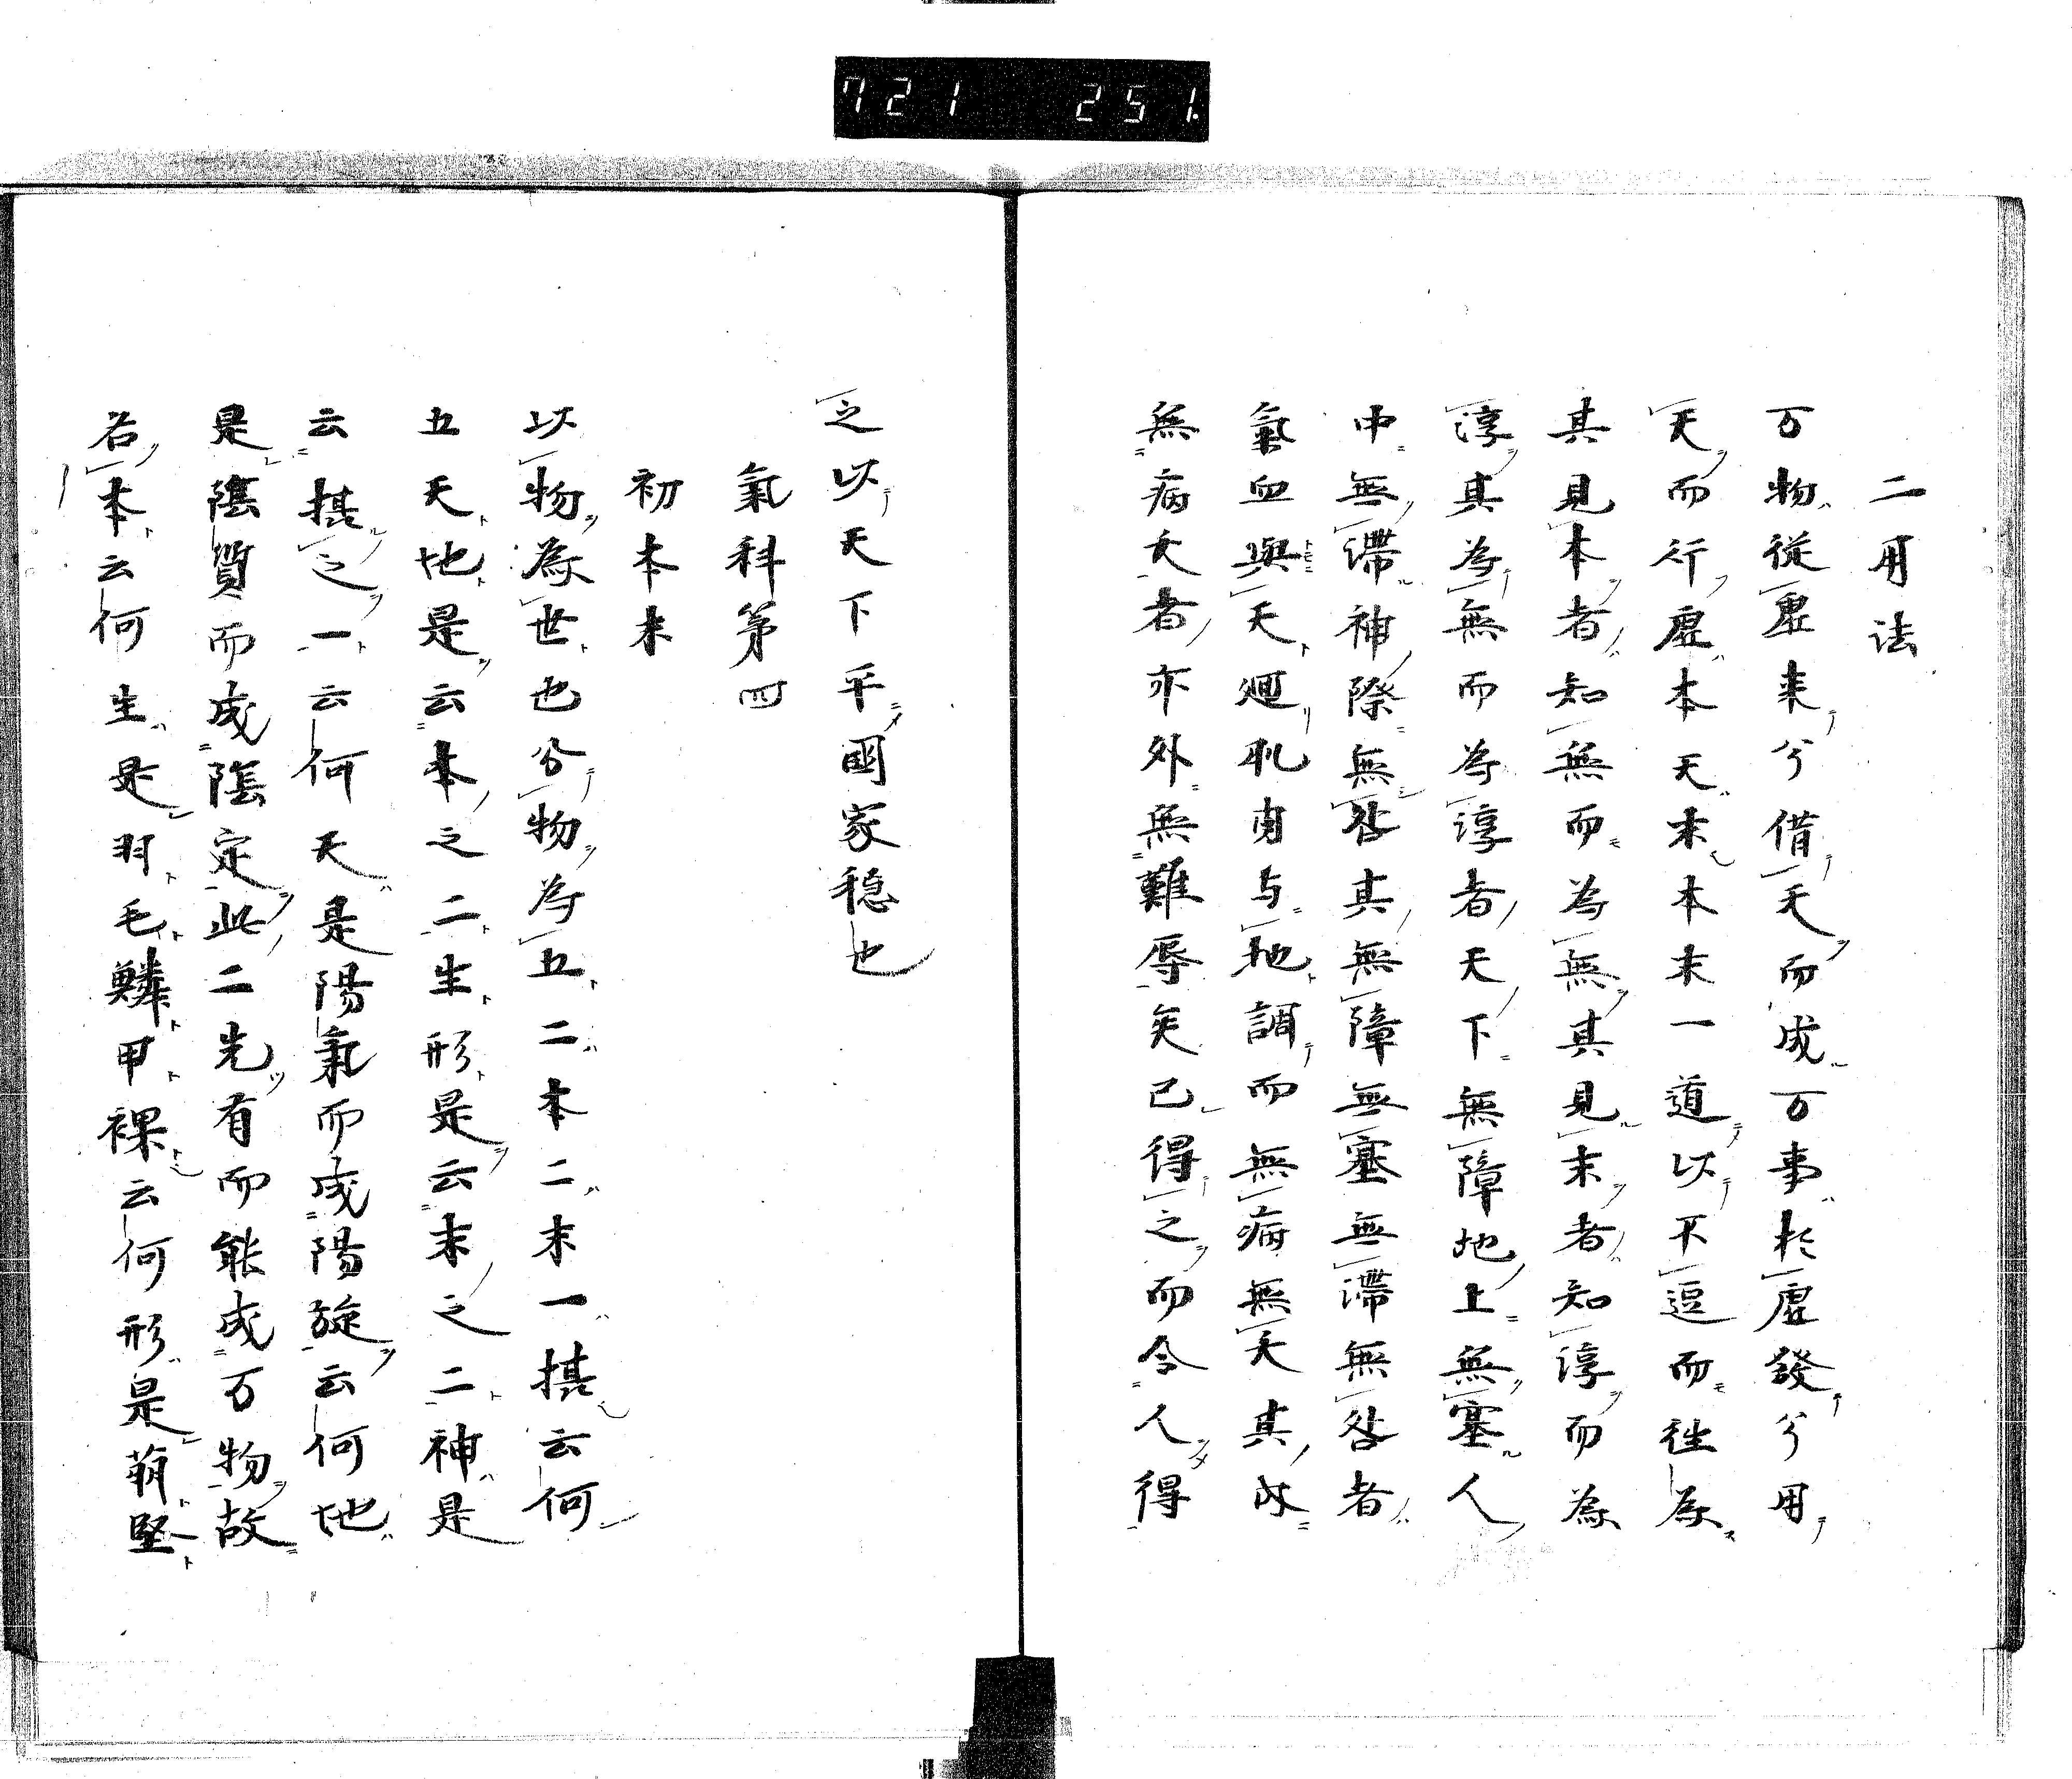 721 251
二用法
万物従虚来兮借天而成万事於虚發兮用
天而行虚本天末本末一道以不逗而徃為
其見本者知無而為無其見末者知淳而為
淳其為無而為淳者天下無障地上無塞人
中無滯神際無咎其無障無塞無滯無咎者
氣血與天廻乳肉与地調而無病無夭其以
無病夭者亦外無難辱矣己得之而令人得
之以天下平國家穏也
氣科第四
初本末
以物為世也分物為五二本二末一揕云何
五天地是云本之二生形是云末之二神是
云揕之一云何天是陽氣而成陽旋云何地
是陰質而成陰定此二先有而能成万物故
名本云何生是羽毛鱗甲裸云何形是萠堅